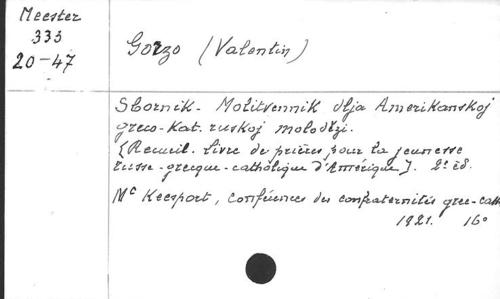 Meester
333
20-47
Gorzo (Valentin)
Sbornik - Molitvennik dlja Amerikanskoj
greco-kat. ruskoj molodëzi.
[Recueil. Livre de prières pour la jeunesse
russe-grecque-catholique d'Amérique]. 2e éd.
Mc Keesport, Conférences des confraternités grec-cath
1921. 16°